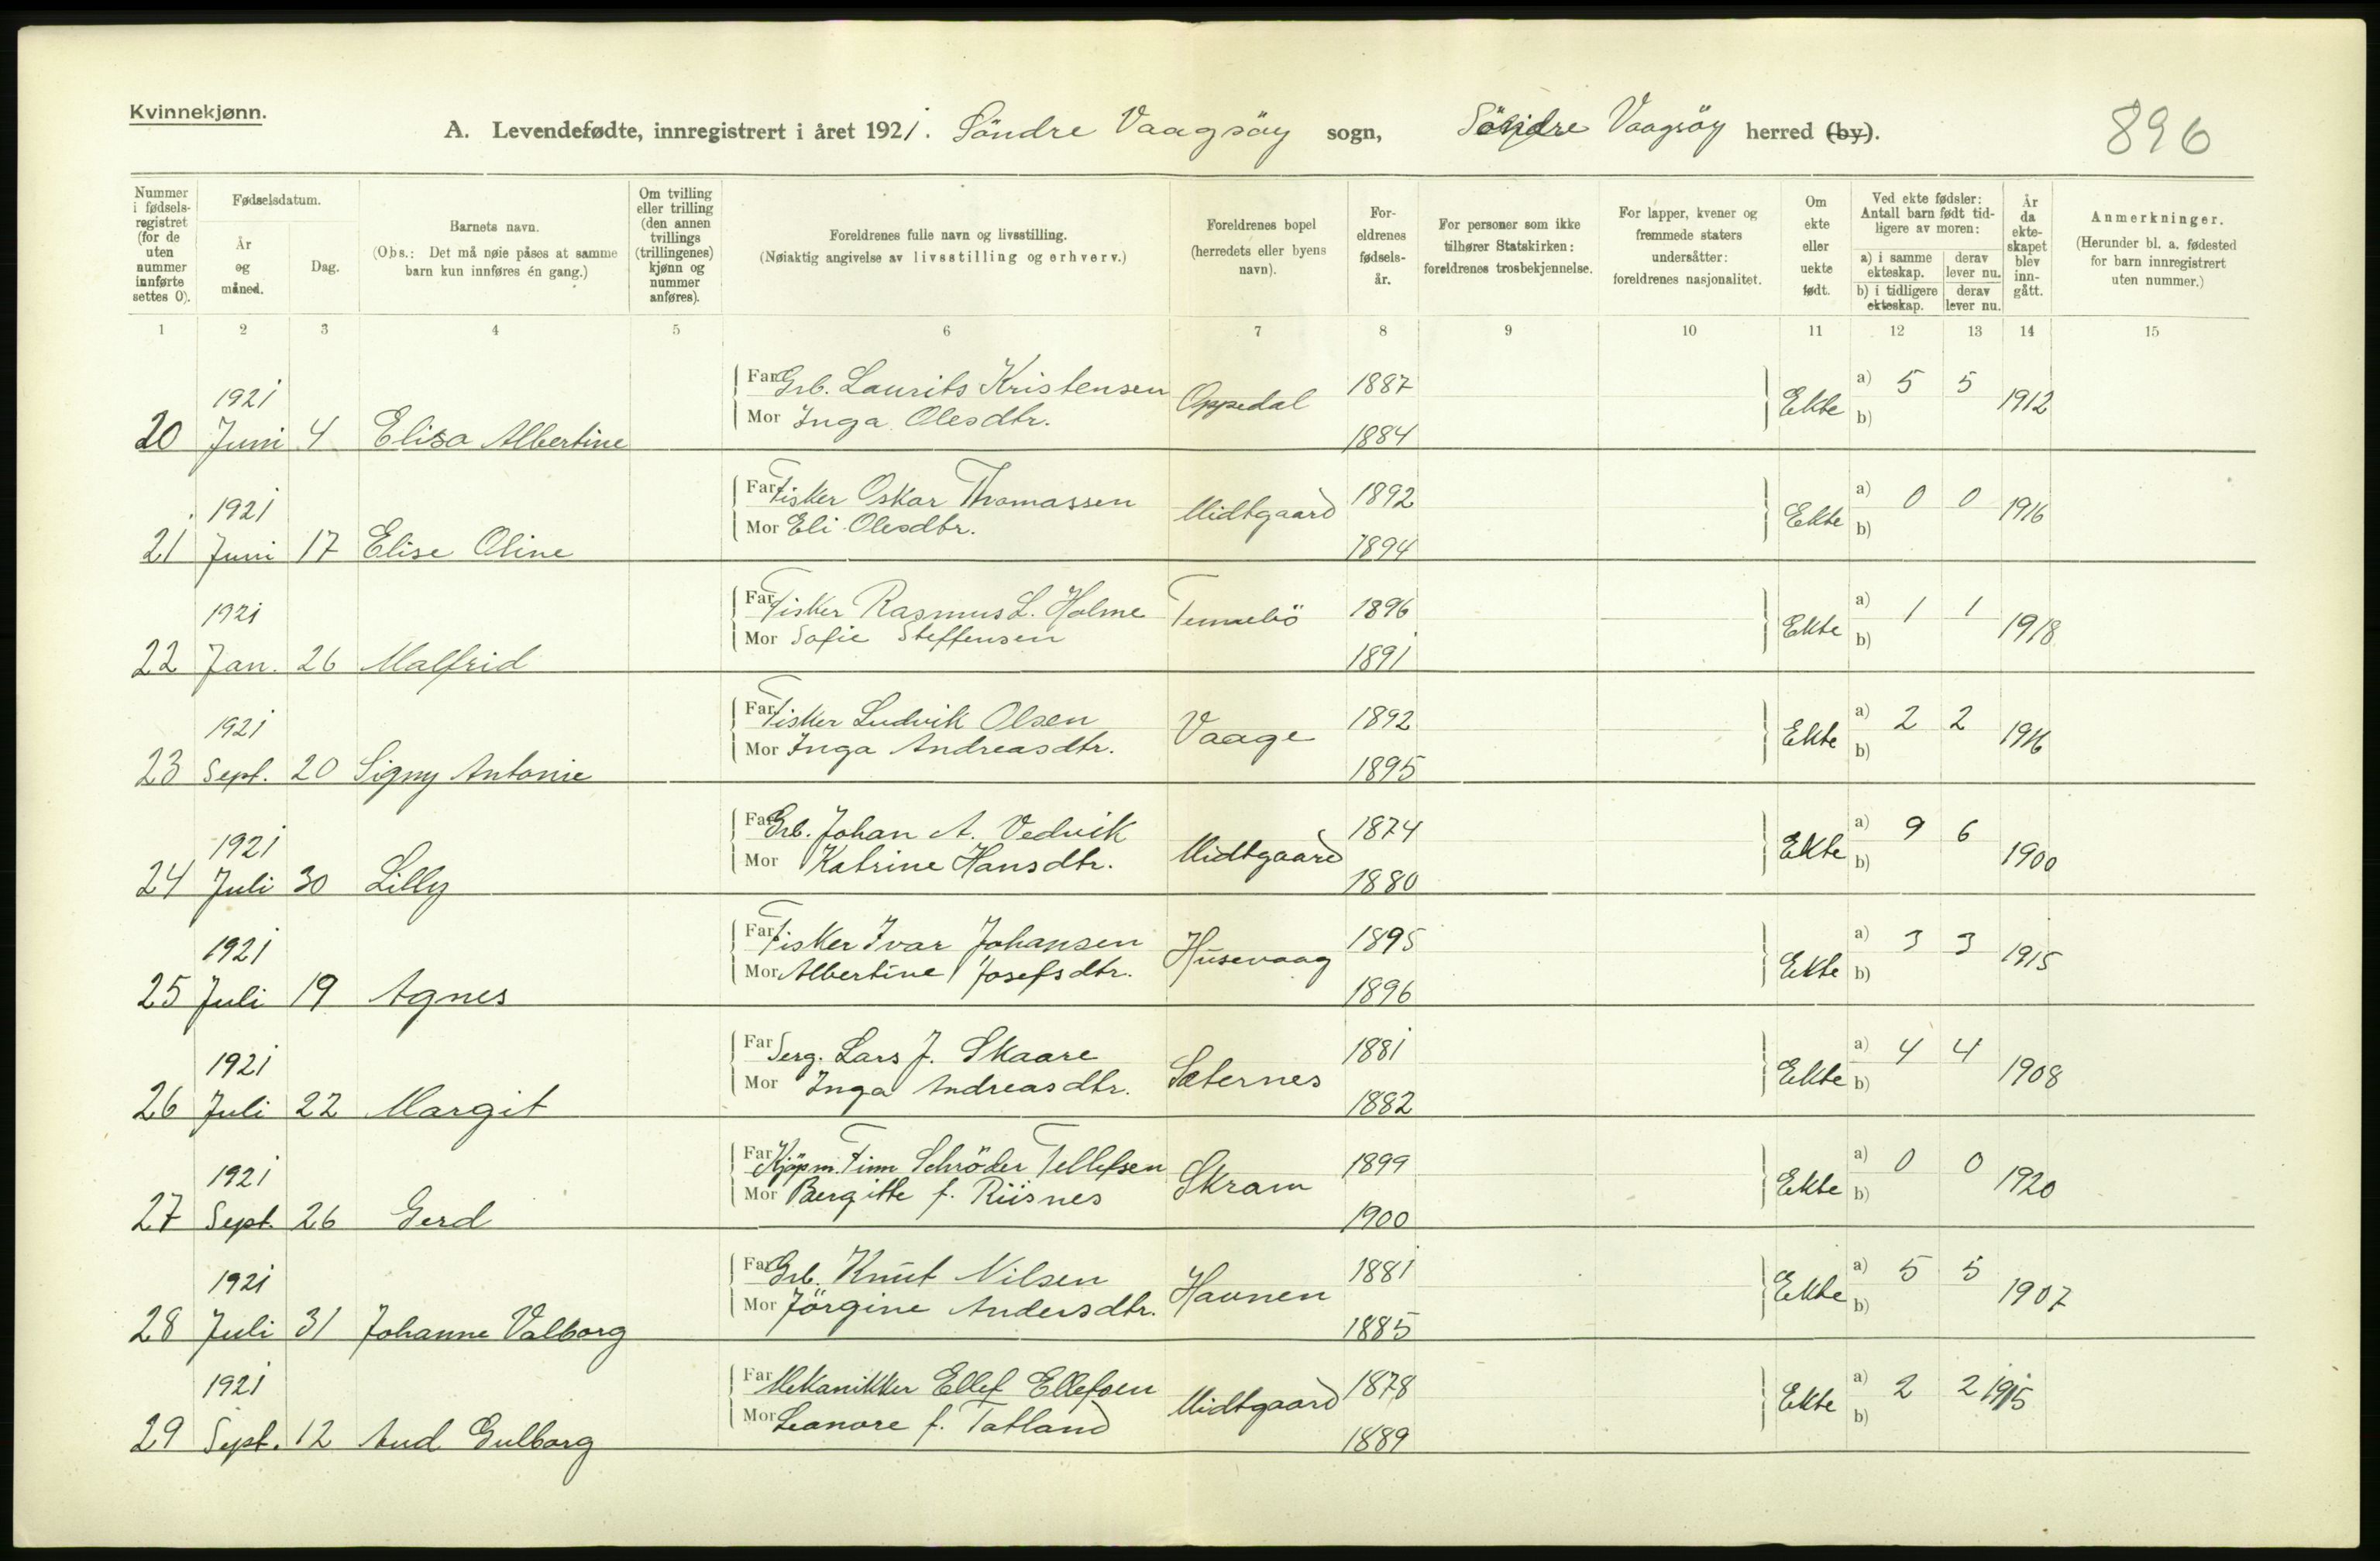 Kvinnekjønn.
A. Levendefødte, innregistrert i året 1921. Söndre Vaagsöy sogn, Söndre Vaagsöy herred (by). 896
Nummer i fødselsregistret (for de uten nummer innførte settes 0).
Fødselsdatum.
År og måned.
Dag.
Barnets navn.
(Obs.: Det må nøie påses at samme barn kun innføres én gang.)
Om tvilling eller trilling (den annen tvillings (trillingenes) kjønn og nummer anføres).
Foreldrenes fulle navn og livsstilling.
(Nøiaktig angivelse av livsstilling og erhverv.)
Foreldrenes bopel (herredets eller byens navn).
Foreldrenes fødselsår.
For personer som ikke tilhører Statskirken: foreldrenes trosbekjennelse.
For lapper, kvener og fremmede staters undersåtter: foreldrenes nasjonalitet.
Om ekte eller uekte født.
Ved ekte fødsler: Antall barn født tidligere av moren:
a) i samme ekteskap. derav lever nu.
b) i tidligere ekteskap. derav lever nu.
År da ekteskapet blev inngått.
Anmerkninger.
(Herunder bl. a. fødested for barn innregistrert uten nummer.)
1 2 3 4 5 6 7 8 9 10 11 12 13 14 15
1921 Far Grb. Laurits Kristensen Oppedal 1887 Ekte a) 5 5 1912
20 Juni 4 Elisa Albertine Mor Inga Olesdtr. 1884 b)
1921 Far Fisker Oskar Thomassen Midtgaard 1892 Ekte a) 0 0 1916
21 Juni 17 Elise Oline Mor Eli Olesdtr. 1894 b)
1921 Far Fisker Rasmus L. Holme Tennebö 1896 Ekte a) 1 1 1918
22 Jan. 26 Malfrid Mor Sofie Steffensen 1891 b)
1921 Far Fisker Ludvik Olsen Vaage 1892 Ekte a) 2 2 1916
23 Sept. 20 Signy Antonie Mor Inga Andreasdtr. 1895 b)
1921 Far Grb. Johan A. Vedvik Midtgaard 1874 Ekte a) 9 6 1900
24 Juli 30 Lilly Mor Katrine Hansdtr. 1880 b)
1921 Far Fisker Ivar Johansen Husevaag 1895 Ekte a) 3 3 1915
25 Juli 19 Agnes Mor Albertine Josefsdtr. 1896 b)
1921 Far Serg. Lars J. Skaare Sæternes 1881 Ekte a) 4 4 1908
26 Juli 22 Margit Mor Inga Andreasdtr. 1882 b)
1921 Far Kjöpm. Finn Schröder Tellefsen Skram 1899 Ekte a) 0 0 1920
27 Sept. 26 Gerd Mor Bergitte f. Riisnes 1900 b)
1921 Far Grb. Knut Nilsen Havnen 1881 Ekte a) 5 5 1907
28 Juli 31 Johanne Valborg Mor Jörgine Andersdtr. 1885 b)
1921 Far Mekanikker Ellef Ellefsen Midtgaard 1878 Ekte a) 2 2 1915
29 Sept. 12 Aud Gulborg Mor Leonore f. Tatland 1889 b)